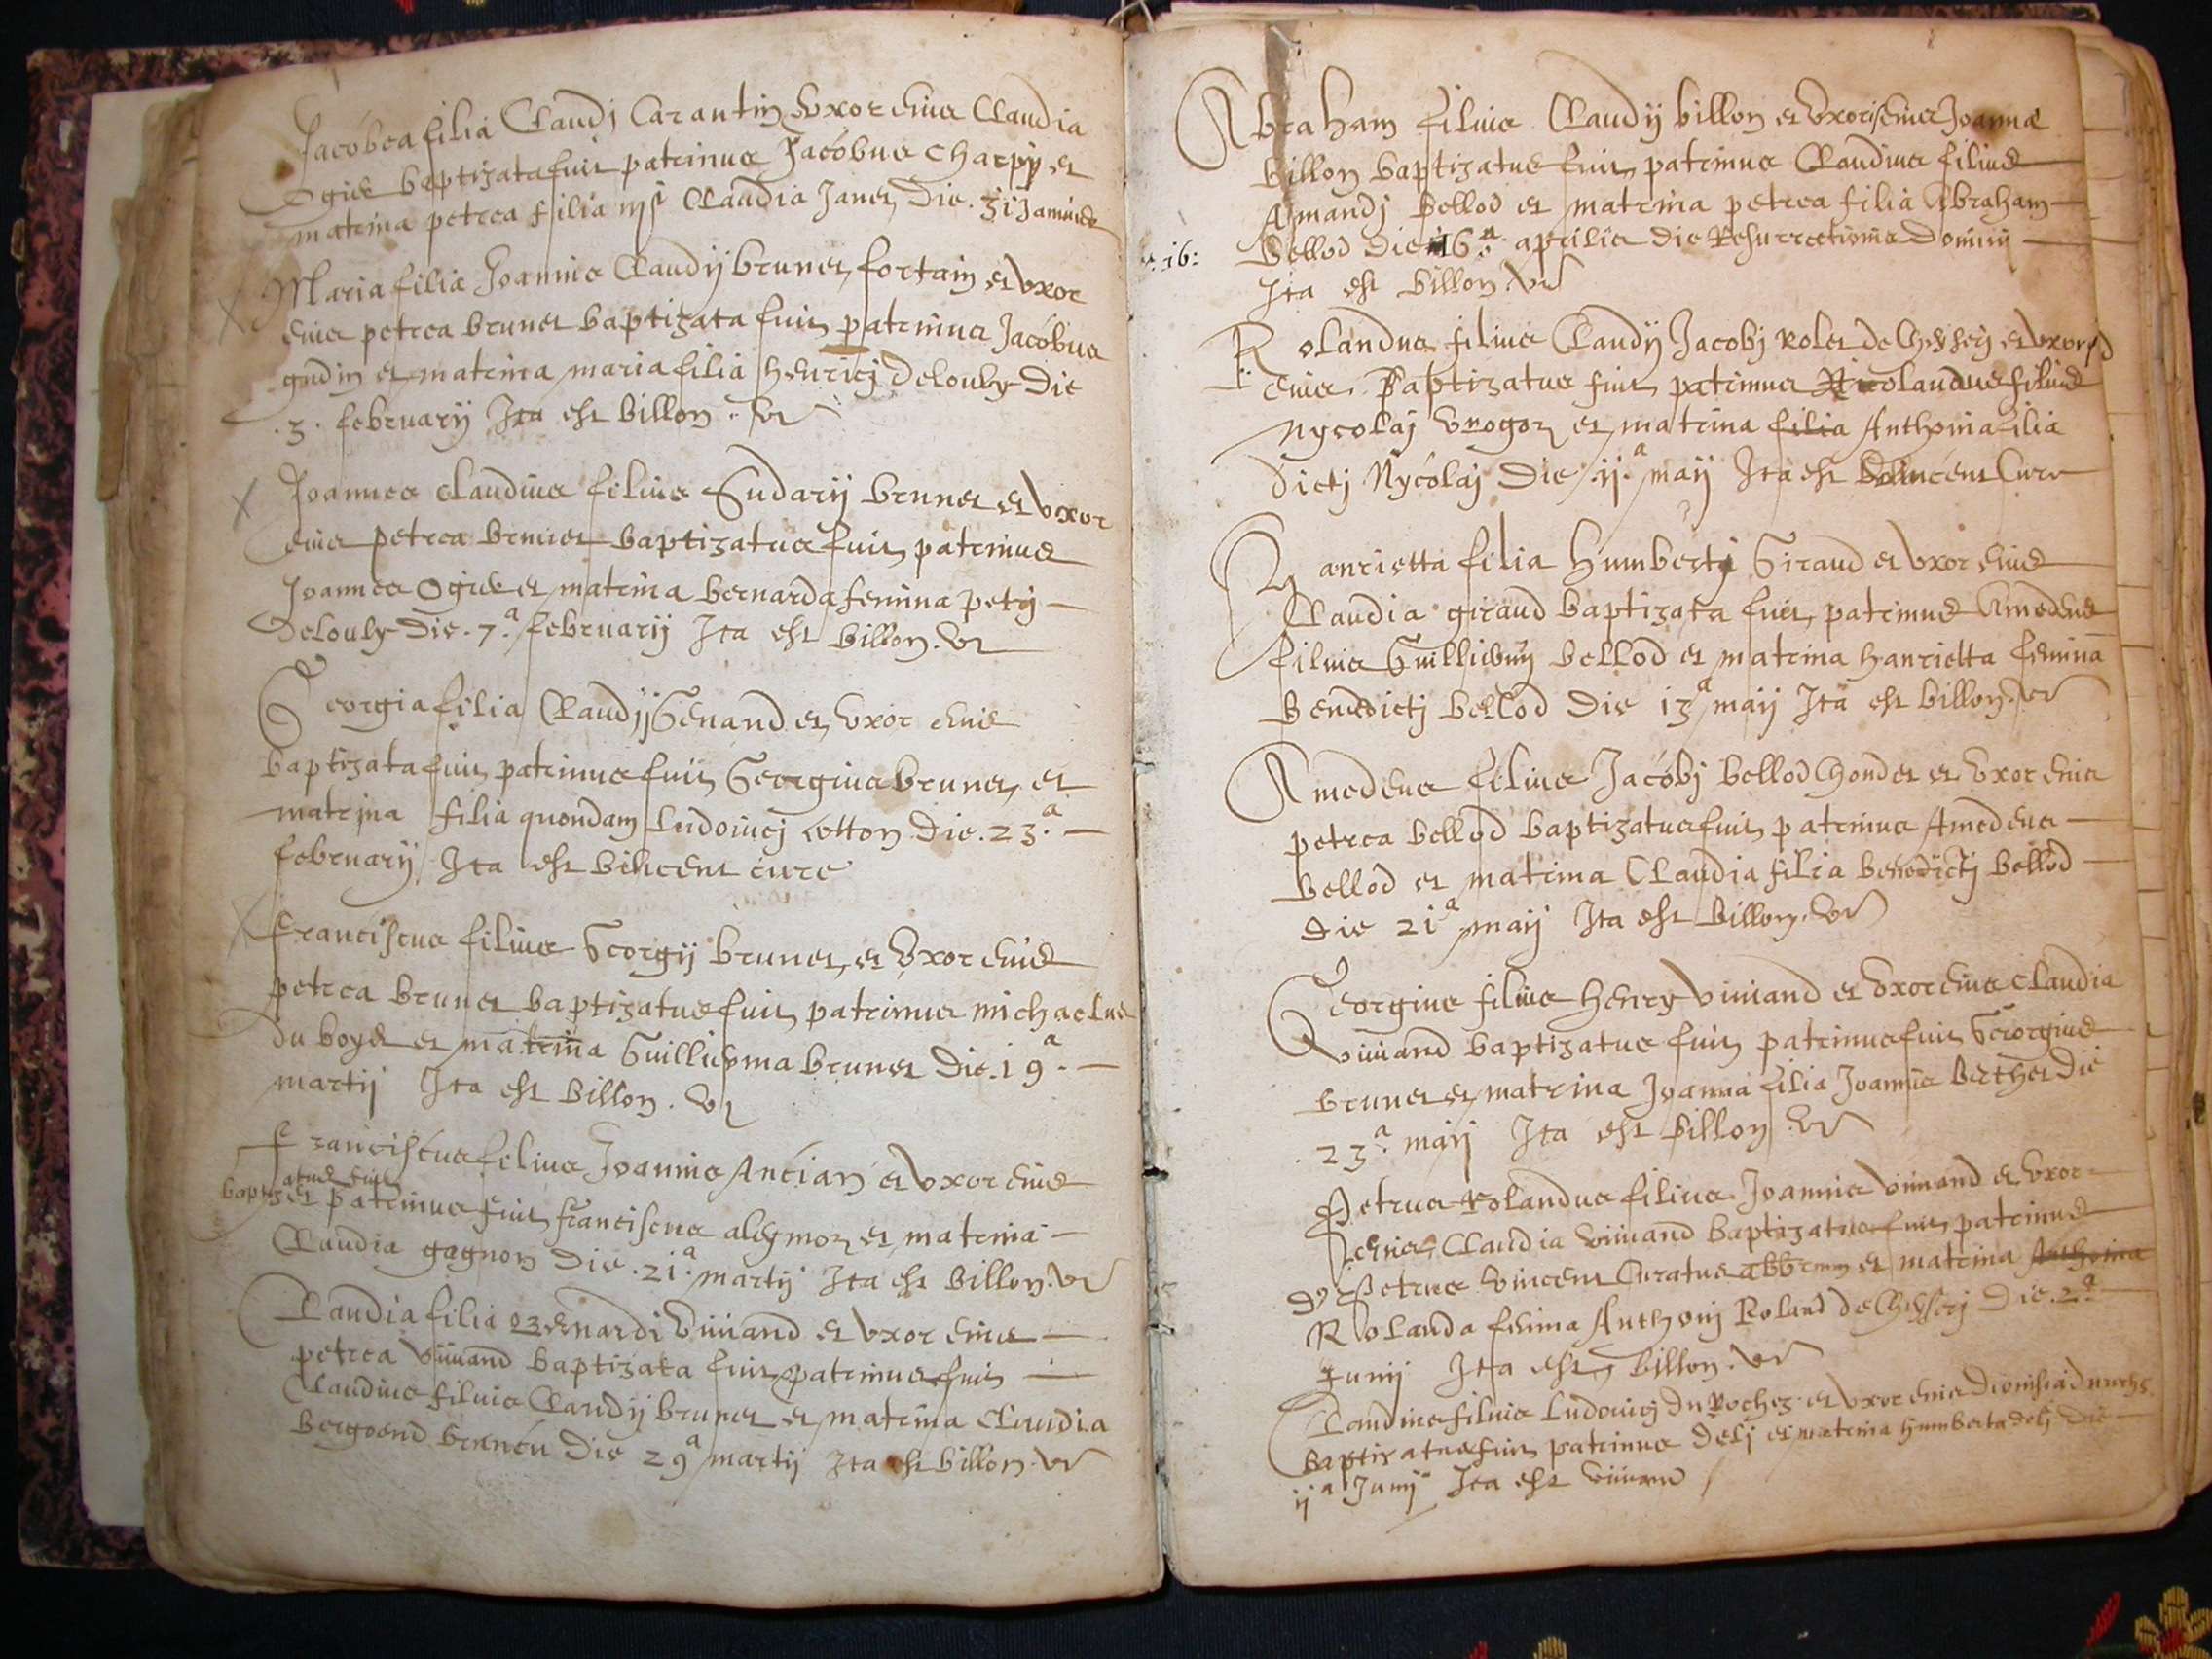 Jacobea filia Claudj Carantin et uxor eius Claudia
Ogier baptizata fuit patrinus Jacobus Charpy et
matrina petrea filia Claudia Janet die 31 Januarij
Maria filia Joannis Claudij brunet fortain et uxor
eius petrea brunet baptizata fuit patrinus Jacobus
gudin et matrina maria filia henricj delouly die
.3. february Ita est billon vr
Joannes claudius filius Sudarij brunet et uxor
eius petrea baptizatus fuit patrinus
Joannes Ogier et matrina bernarda femina petrj
delouly die .7.a february Ita est billon vr
Georgia filia Claudij Genand et uxor eius
baptizata fuit patrinus fuit Georgius brunet et
matrina filia quondam Ludovicj cotton die .23.a
february Ita est Vincent cure
franciscus filius Georgij brunet et uxor eius
petrea brunet baptizatus fuit patrinus michaelus
du boys et matrina Guillierma brunet die .19.a
martij Ita est billon vr
franciscus filius Joannis Ancian et uxor eius
baptizatus fuit
et patrinus fuit franciscus et matrina
Claudia gagnon die .21.a martij Ita est billon vr
Claudia filia Viviand et uxor eius
petrea viviand baptizata fuit patrinus fuit
Claudius filius Claudij brunet et matrina Claudia
die 29a martij Ita est billon vr
Abraham filius Claudij billon et uxoris eius Joanna
billon baptizatus fuit patrinus Claudius filius
Amandj bellod et matrina petrea filia Abraham
bellod die 16.a aprilis die Resurrectionis Dominj
16:
Ita est billon vr
Rolandus filius Claudij Jacobj rolet de Cheysery et uxoris
eius Baptizatus fuit patrinus Rolandus filius
Nycolaj et matrina filia Anthonia filia
dictj Nycolaj Die .ij.a maij Ita est Vincent Cure
Hanrietta filia humbertj Giraud et uxor eius
Claudia giraud baptizata fuit patrinus Amedeus
filius Guilliermj bellod et matrina hanrietta femina
Benedictj bellod die 13a maij Ita est billon vr
Amedeus filius Jacobj bellod et uxor eius
petrea bellod baptizatus fuit patrinus Amedeus
bellod et matrina Claudia filia benedictj bellod
die 21a maij Ita est billon vr
Georgius filius henry viviand et uxor eius claudia
viviand baptizatus fuit patrinus fuit Georgius
brunet et matrina Joanna filia Joannis berthet die
.23.a maij Ita est billon vr
Petrus rolandus filius Joannis viviand et uxor
eius Claudia viviand baptizatus fuit patrinus
Petrus vincent Curatus et matrina Anthonia
Rolanda femina Anthonj Roland de Cheysery die .2.a
Junij Ita est billon vr
Claudius filius Ludovicj du rochez et uxor eius
baptizatus fuit patrinus et matrina humberta die
ij a Junij Ita est viviand